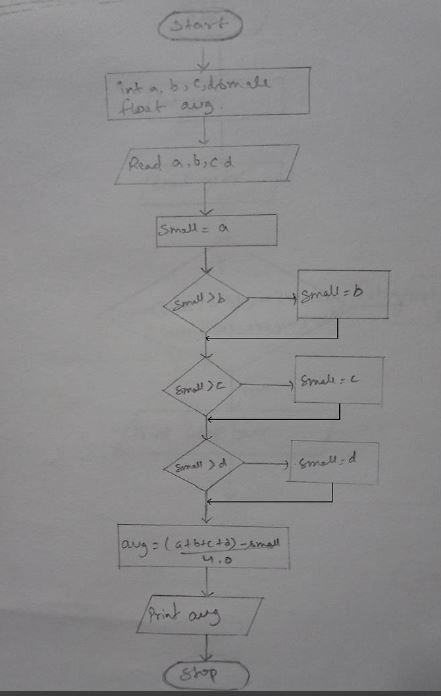 Start
int a, b, c, d, small
float avg.
Read a, b, c d
Small = a
Small > b
Small = b
Small > c
Small = c
Small > d
Small = d
avg = (a+b+c+d) - small
4.0
Print avg
Stop